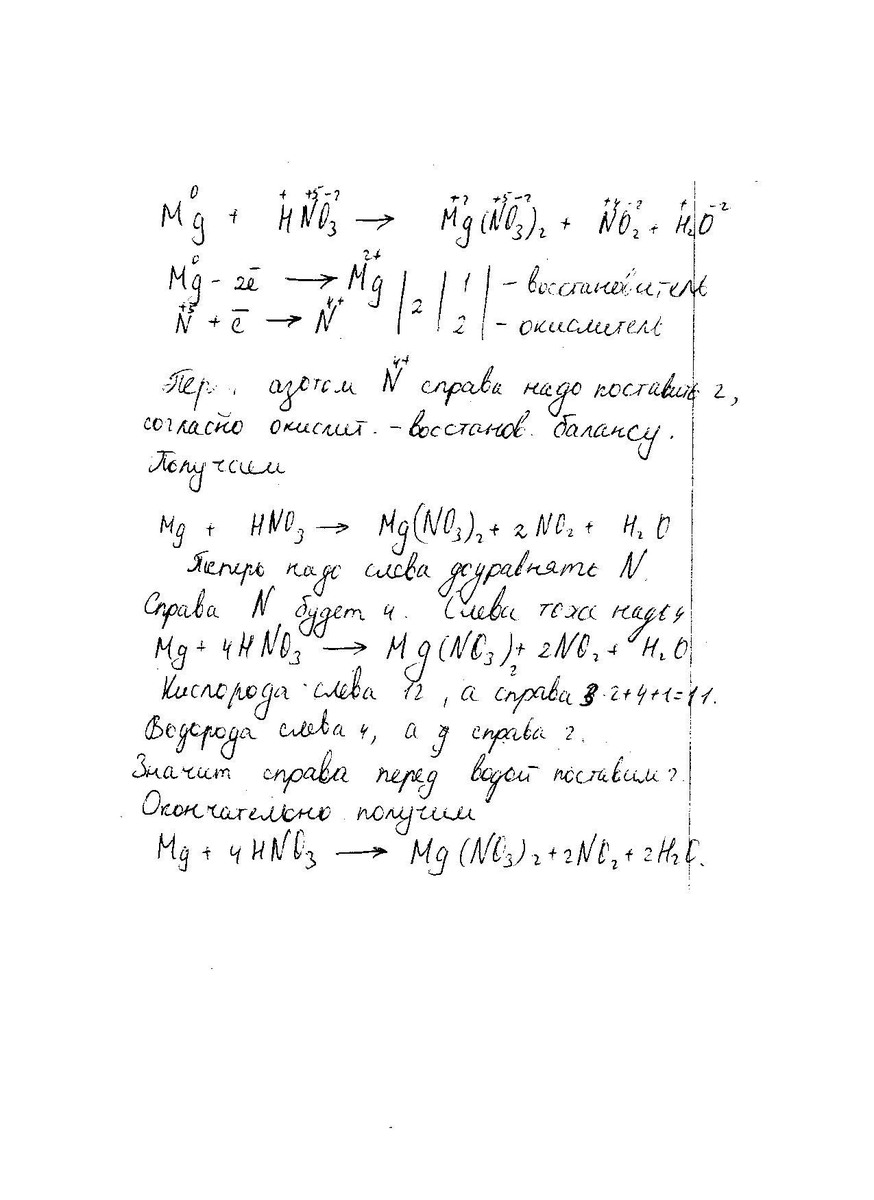 Mg⁰ + H⁺N⁺⁵O₃⁻² → Mg⁺²(N⁺⁵O₃⁻²)₂ + N⁺⁴O₂⁻² + H₂⁺O⁻²
Mg⁰ - 2ē → Mg²⁺ | 2 | 1 | - восстановитель
N⁺⁵ + ē → N⁴⁺ | | 2 | - окислитель
азотом N⁴⁺ справа надо поставить 2,
согласно окислит. - восстанов. балансу.
Получаем
Mg + HNO₃ → Mg(NO₃)₂ + 2NO₂ + H₂O
Теперь надо слева доуравнять N.
Справа N будет 4. Слева тоже надо 4
Mg + 4HNO₃ → Mg(NO₃)₂ + 2NO₂ + H₂O
Кислорода слева 12, а справа 3·2+4+1=11.
Водорода слева 4, а справа 2.
Значит справа перед водой поставим 2
Окончательно получим
Mg + 4HNO₃ → Mg(NO₃)₂ + 2NO₂ + 2H₂O.